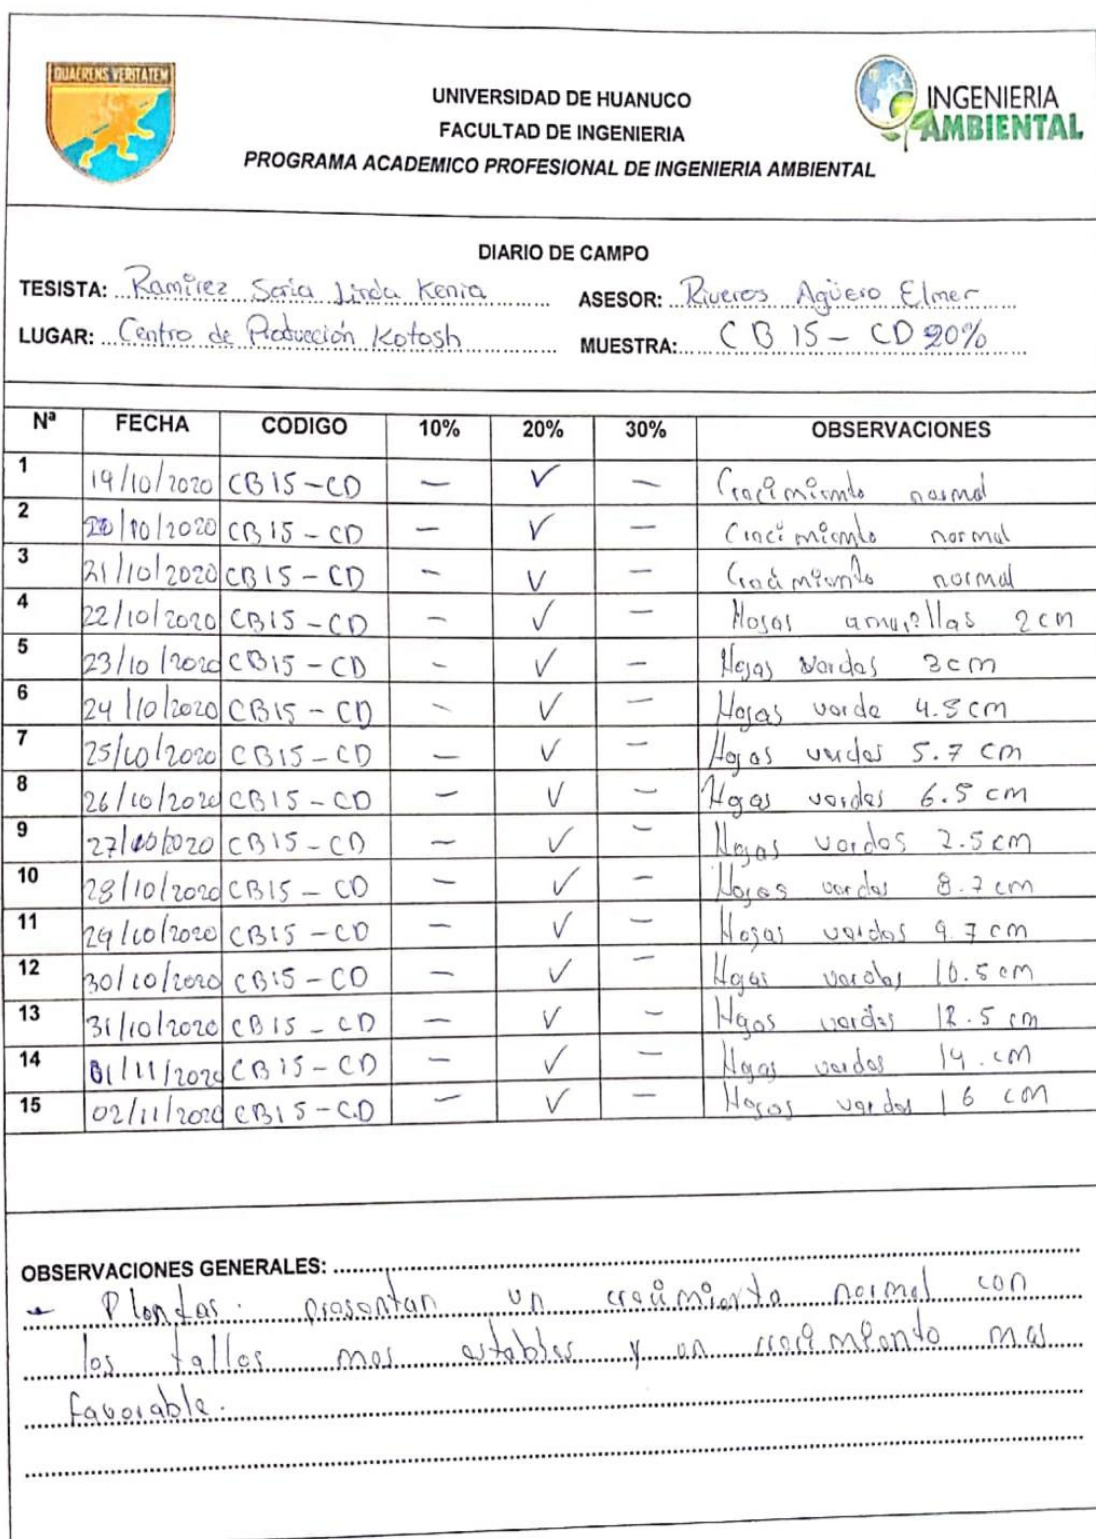 QUAERENS VERITATEM
UNIVERSIDAD DE HUANUCO
FACULTAD DE INGENIERIA
PROGRAMA ACADEMICO PROFESIONAL DE INGENIERIA AMBIENTAL
INGENIERIA
AMBIENTAL
DIARIO DE CAMPO
TESISTA: Ramírez Soria Linda Kenia ASESOR: Riveros Agüero Elmer
LUGAR: Centro de Producción Kotosh MUESTRA: CB 15 - CD 20%
Nª FECHA CODIGO 10% 20% 30% OBSERVACIONES
1 19/10/2020 CB 15 - CD — ✓ — Crecimiento normal
2 20/10/2020 CB 15 - CD — ✓ — Crecimiento normal
3 21/10/2020 CB 15 - CD — ✓ — Crecimiento normal
4 22/10/2020 CB15 - CD — ✓ — Hojas amarillas 2cm
5 23/10/2020 CB15 - CD — ✓ — Hojas verdes 3cm
6 24/10/2020 CB15 - CD — ✓ — Hojas verde cm
7 25/10/2020 CB15 - CD — ✓ — Hojas verdes 5.7 cm
8 26/10/2020 CB15 - CD — ✓ — Hojas verdes 6.5 cm
9 27/10/2020 CB15 - CD — ✓ — Hojas verdes cm
10 28/10/2020 CB15 - CD — ✓ — Hojas verdes cm
11 29/10/2020 CB15 - CD — ✓ — Hojas verdes 9.7 cm
12 30/10/2020 CB15 - CD — ✓ — Hojas verdes 10.5 cm
13 31/10/2020 CB15 - CD — ✓ — Hojas verdes 12.5 cm
14 01/11/2020 CB15 - CD — ✓ — Hojas verdes 14. cm
15 02/11/2020 CB15 - CD — ✓ — Hojas verdes 16 cm
OBSERVACIONES GENERALES:
- Plantas. presentan un crecimiento normal con
los tallos mas estables y un crecimiento mas
favorable.